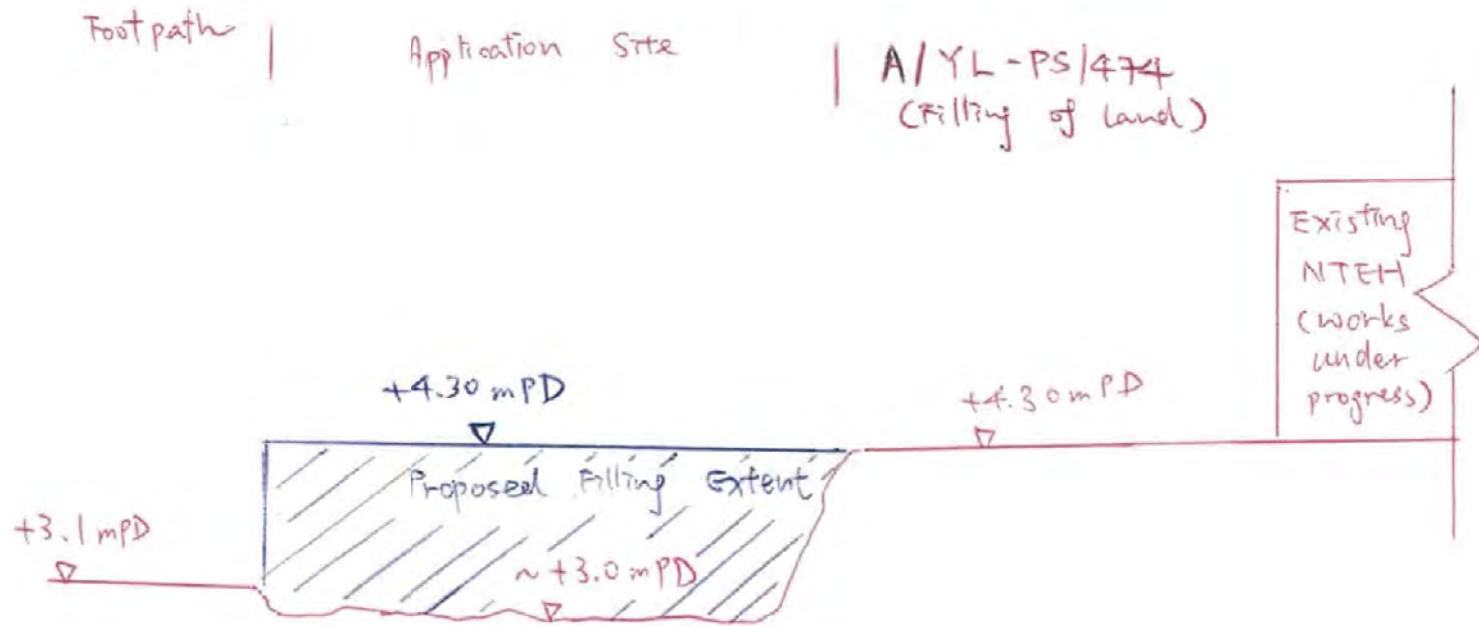 Footpath
Application Site
A/YL-PS/474
(Filling of Land)
Existing
NTEH
(works
under
progress)
+4.30 mPD
+4.30 mPD
Proposed Filling Extent
+3.1 mPD
~+3.0 mPD